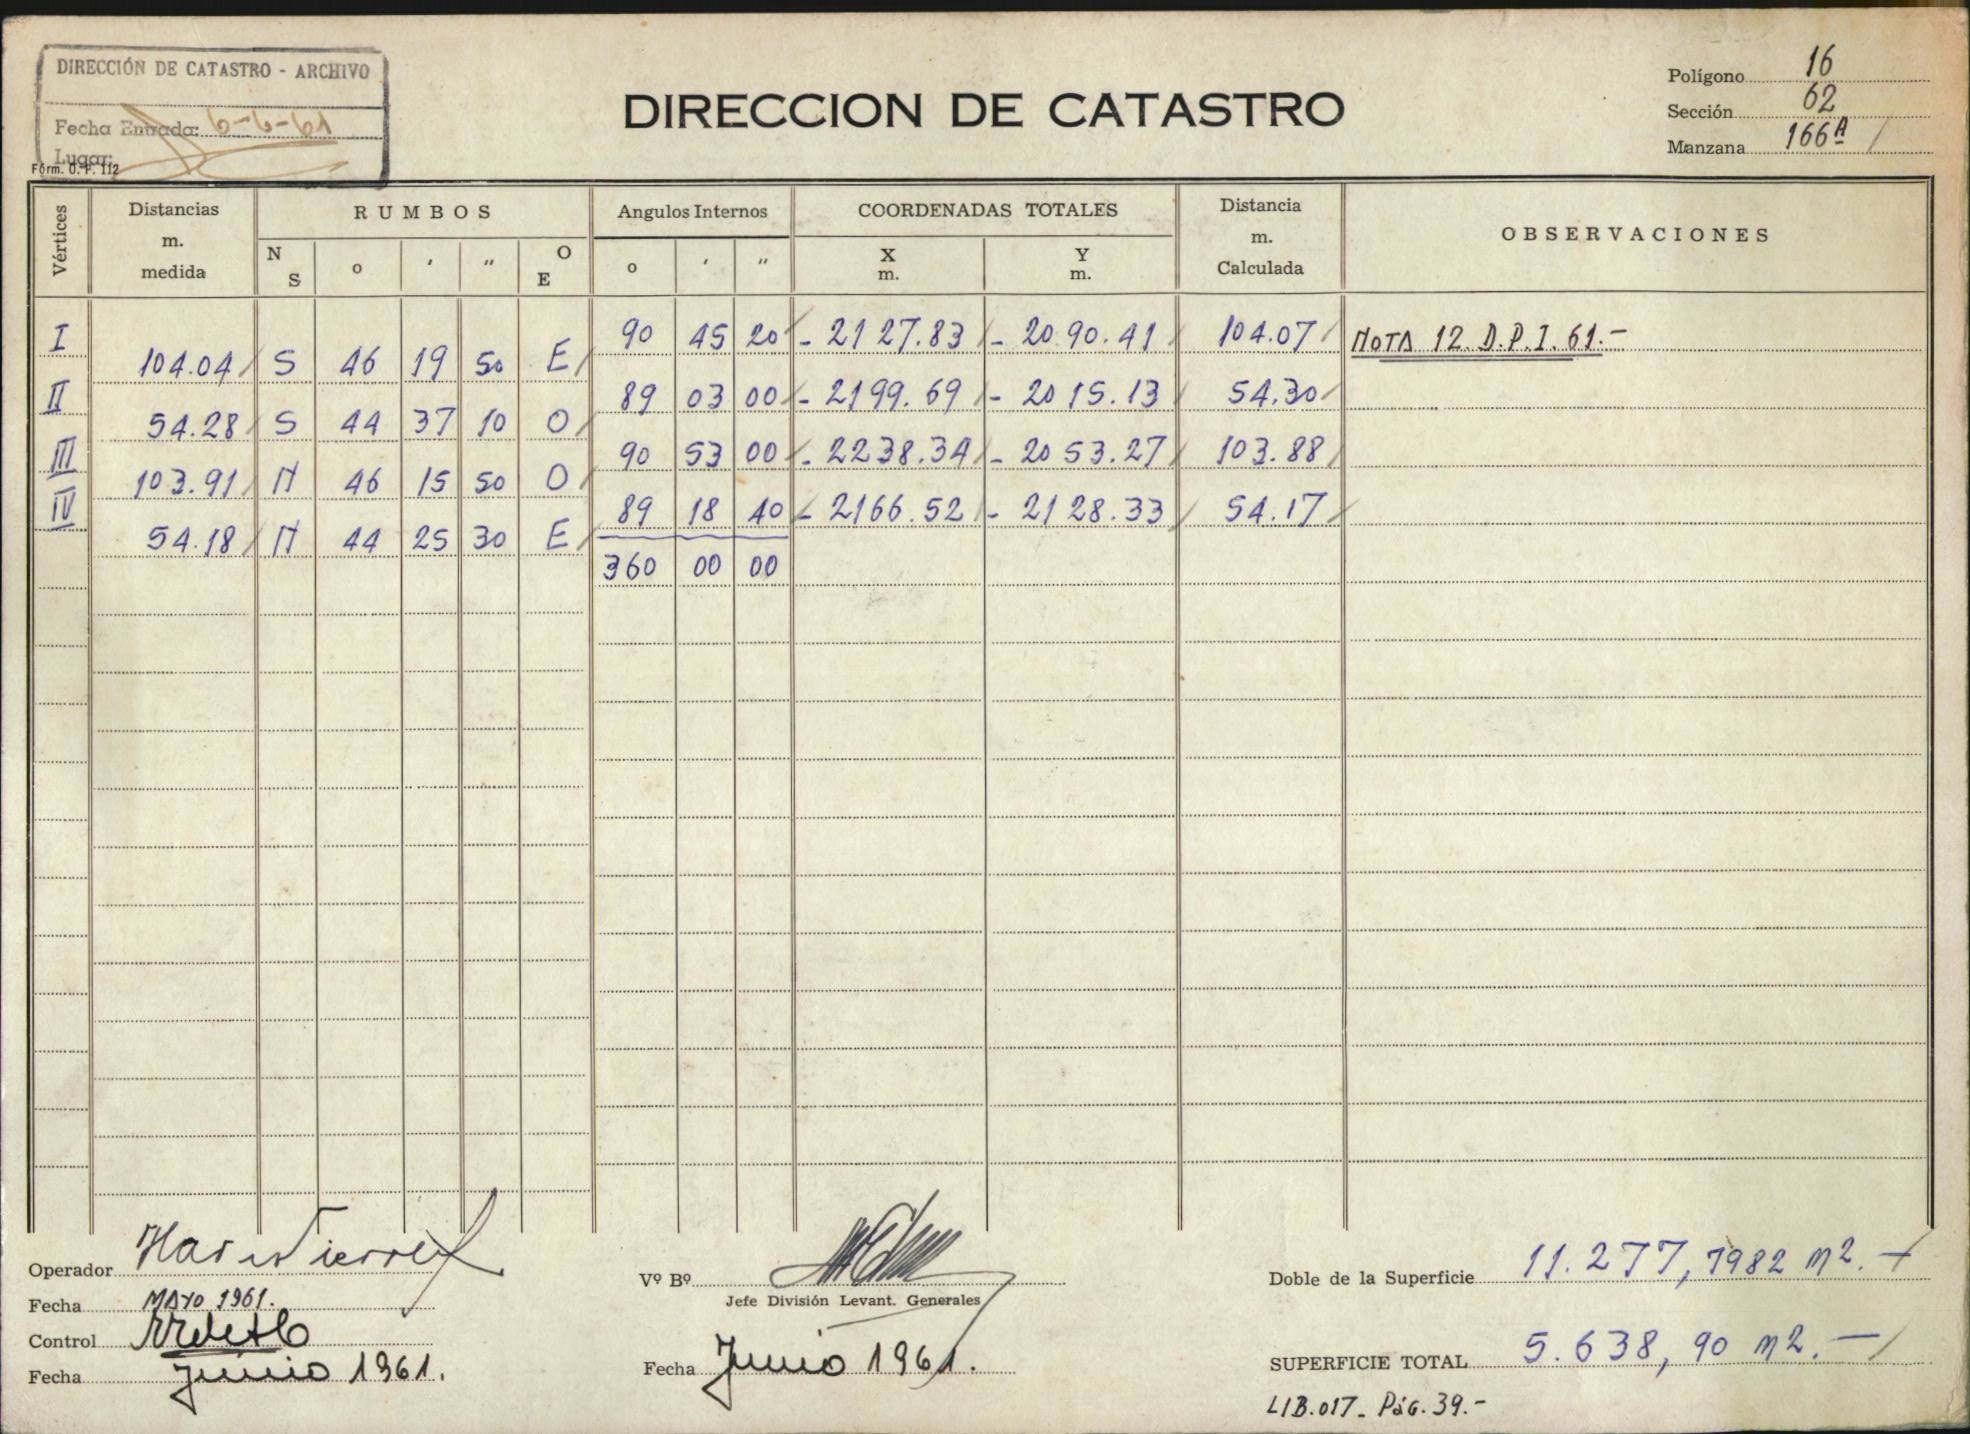 DIRECCIÓN DE CATASTRO - ARCHIVO
Fecha Entrada: 6-6-61
Lugar:
Fórm. O. P. 112
DIRECCION DE CATASTRO
Polígono 16
Sección 62
Manzana 166A
Vértices
Distancias m. medida
RUMBOS
N S o ' " O E
Angulos Internos
o ' "
COORDENADAS TOTALES
X m. Y m.
Distancia m. Calculada
OBSERVACIONES
I 90 45 20 - 2127.83 - 2090.41 104.07 NOTA 12. D.P.I. 61.-
104.04 S 46 19 50 E
II 89 03 00 - 2199.69 - 2015.13 54.30
54.28 S 44 37 10 O
III 90 53 00 - 2238.34 - 2053.27 103.88
103.91 N 46 15 50 O
IV 89 18 40 - 2166.52 - 2128.33 54.17
54.18 N 44 25 30 E
360 00 00
Operador
Fecha MAYO 1961.
Control
Fecha Junio 1961.
Vº Bº
Jefe División Levant. Generales
Fecha Junio 1961.
Doble de la Superficie 11.277,7982 m2.-
SUPERFICIE TOTAL 5.638,90 m2.-
LIB.017- Pág. 39.-